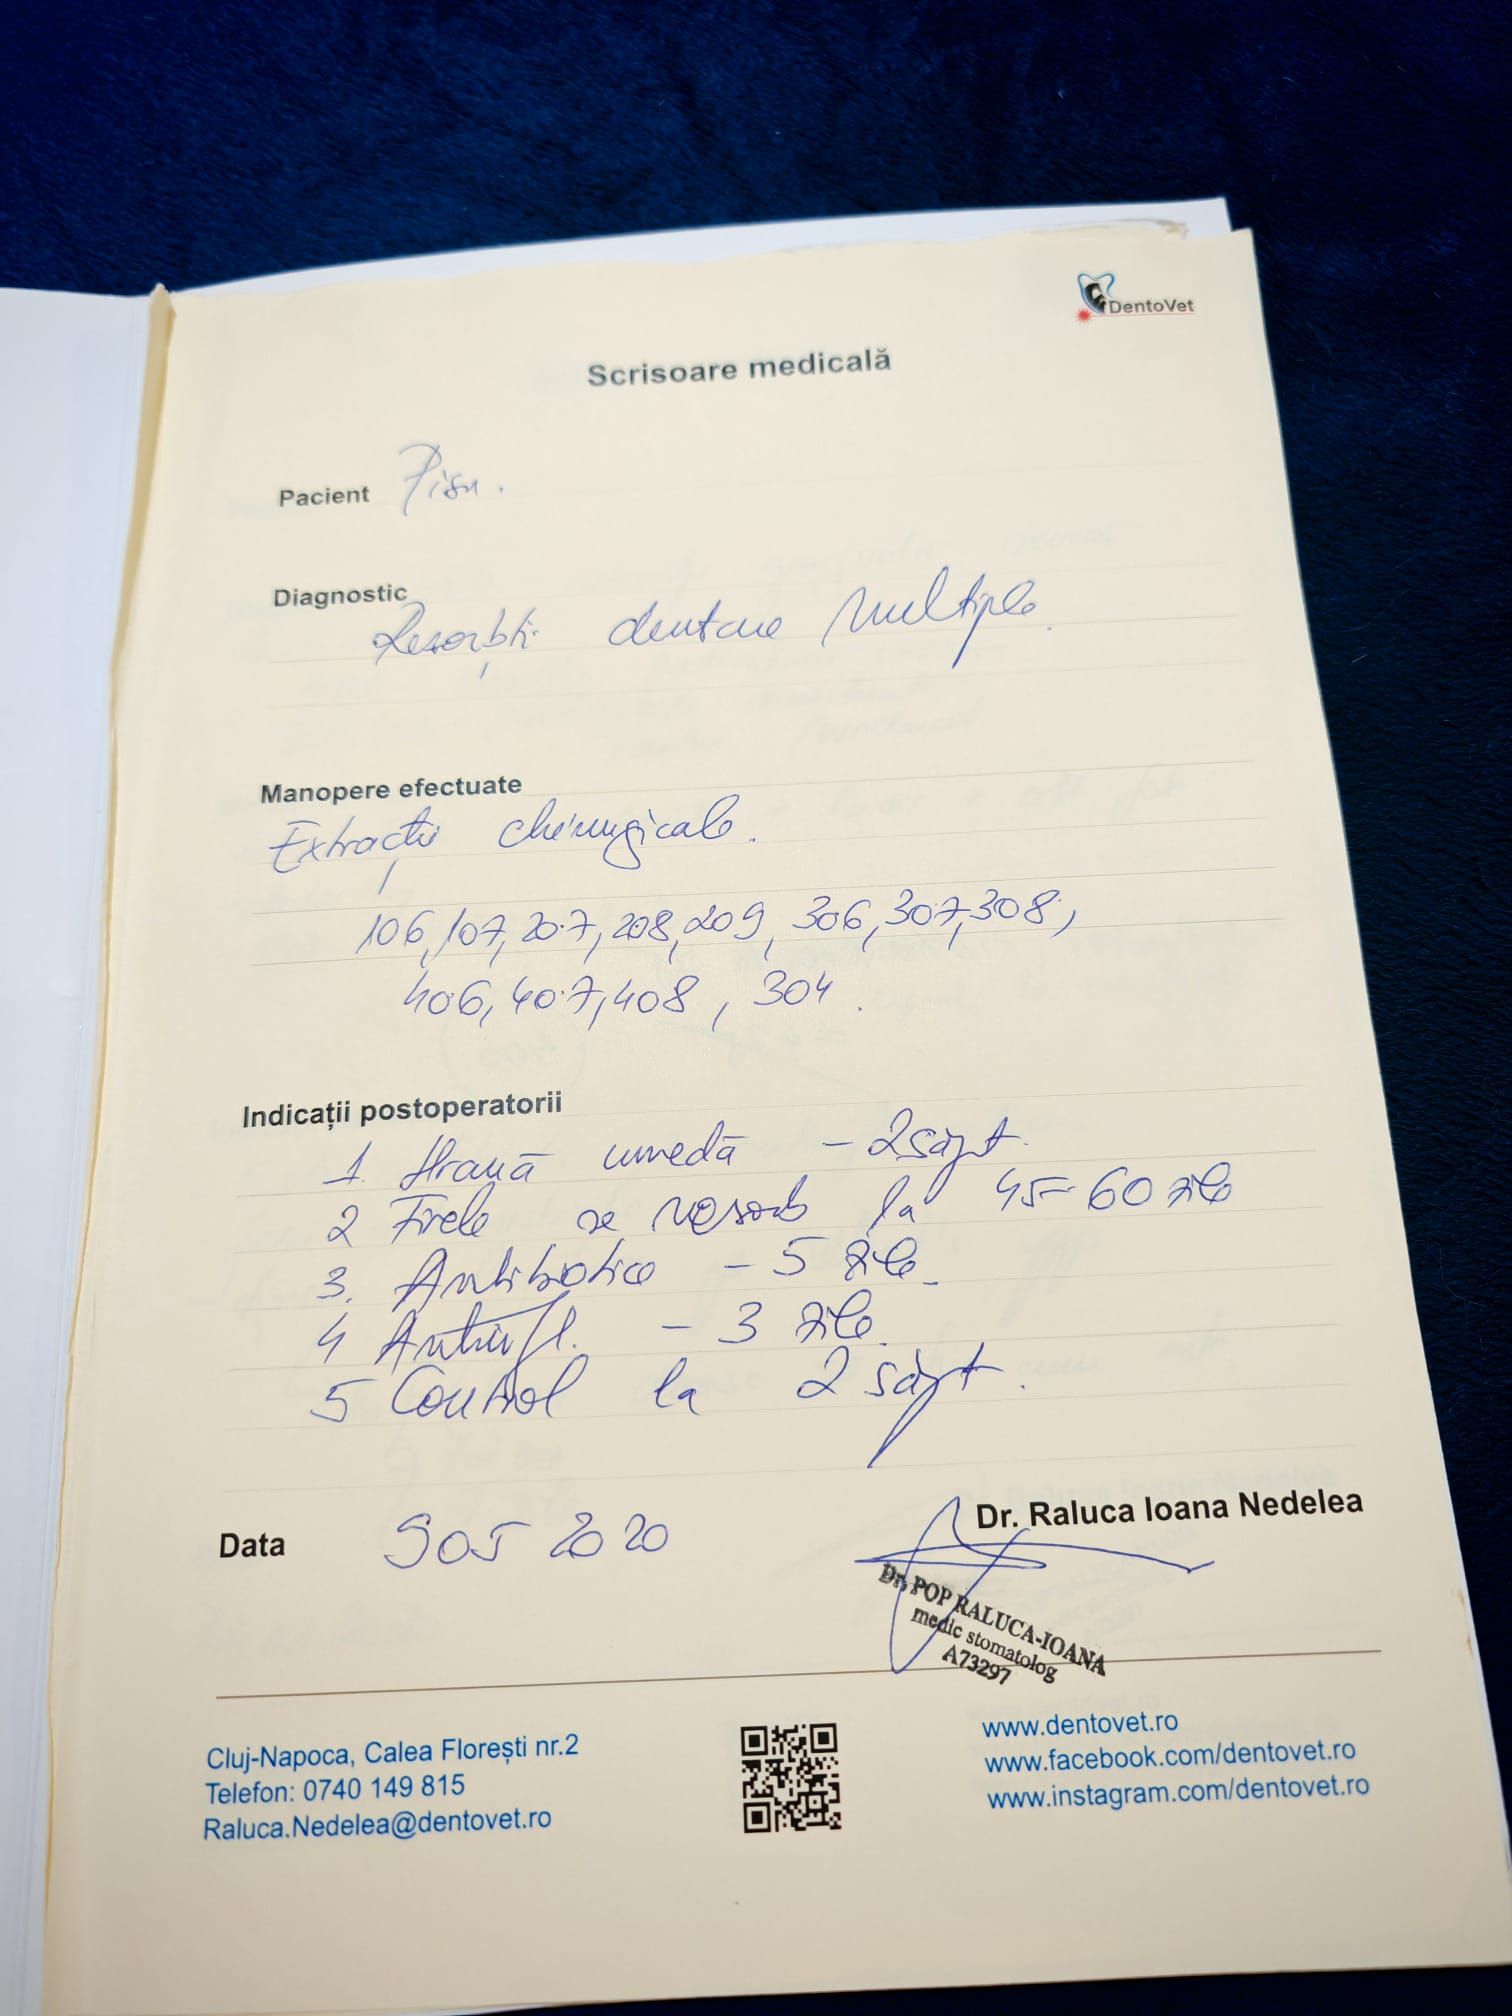 DentoVet
Scrisoare medicală
Pacient Pisu.
Diagnostic
Resorbții dentare multiple.
Manopere efectuate
Extracții chirurgicale.
106, 107, 207, 208, 209, 306, 307, 308,
406, 407, 408, 304.
Indicații postoperatorii
1. Hrană umedă - 2 săpt.
2 Firele se resorb la 45-60 zile
3. Antibiotice - 5 zile.
4 Antiinfl. - 3 zile.
5 Control la 2 săpt.
Dr. Raluca Ioana Nedelea
Data 9 05 2020
Dr. POP RALUCA-IOANA
medic stomatolog
A73297
Cluj-Napoca, Calea Florești nr.2
Telefon: 0740 149 815
Raluca.Nedelea@dentovet.ro
www.dentovet.ro
www.facebook.com/dentovet.ro
www.instagram.com/dentovet.ro